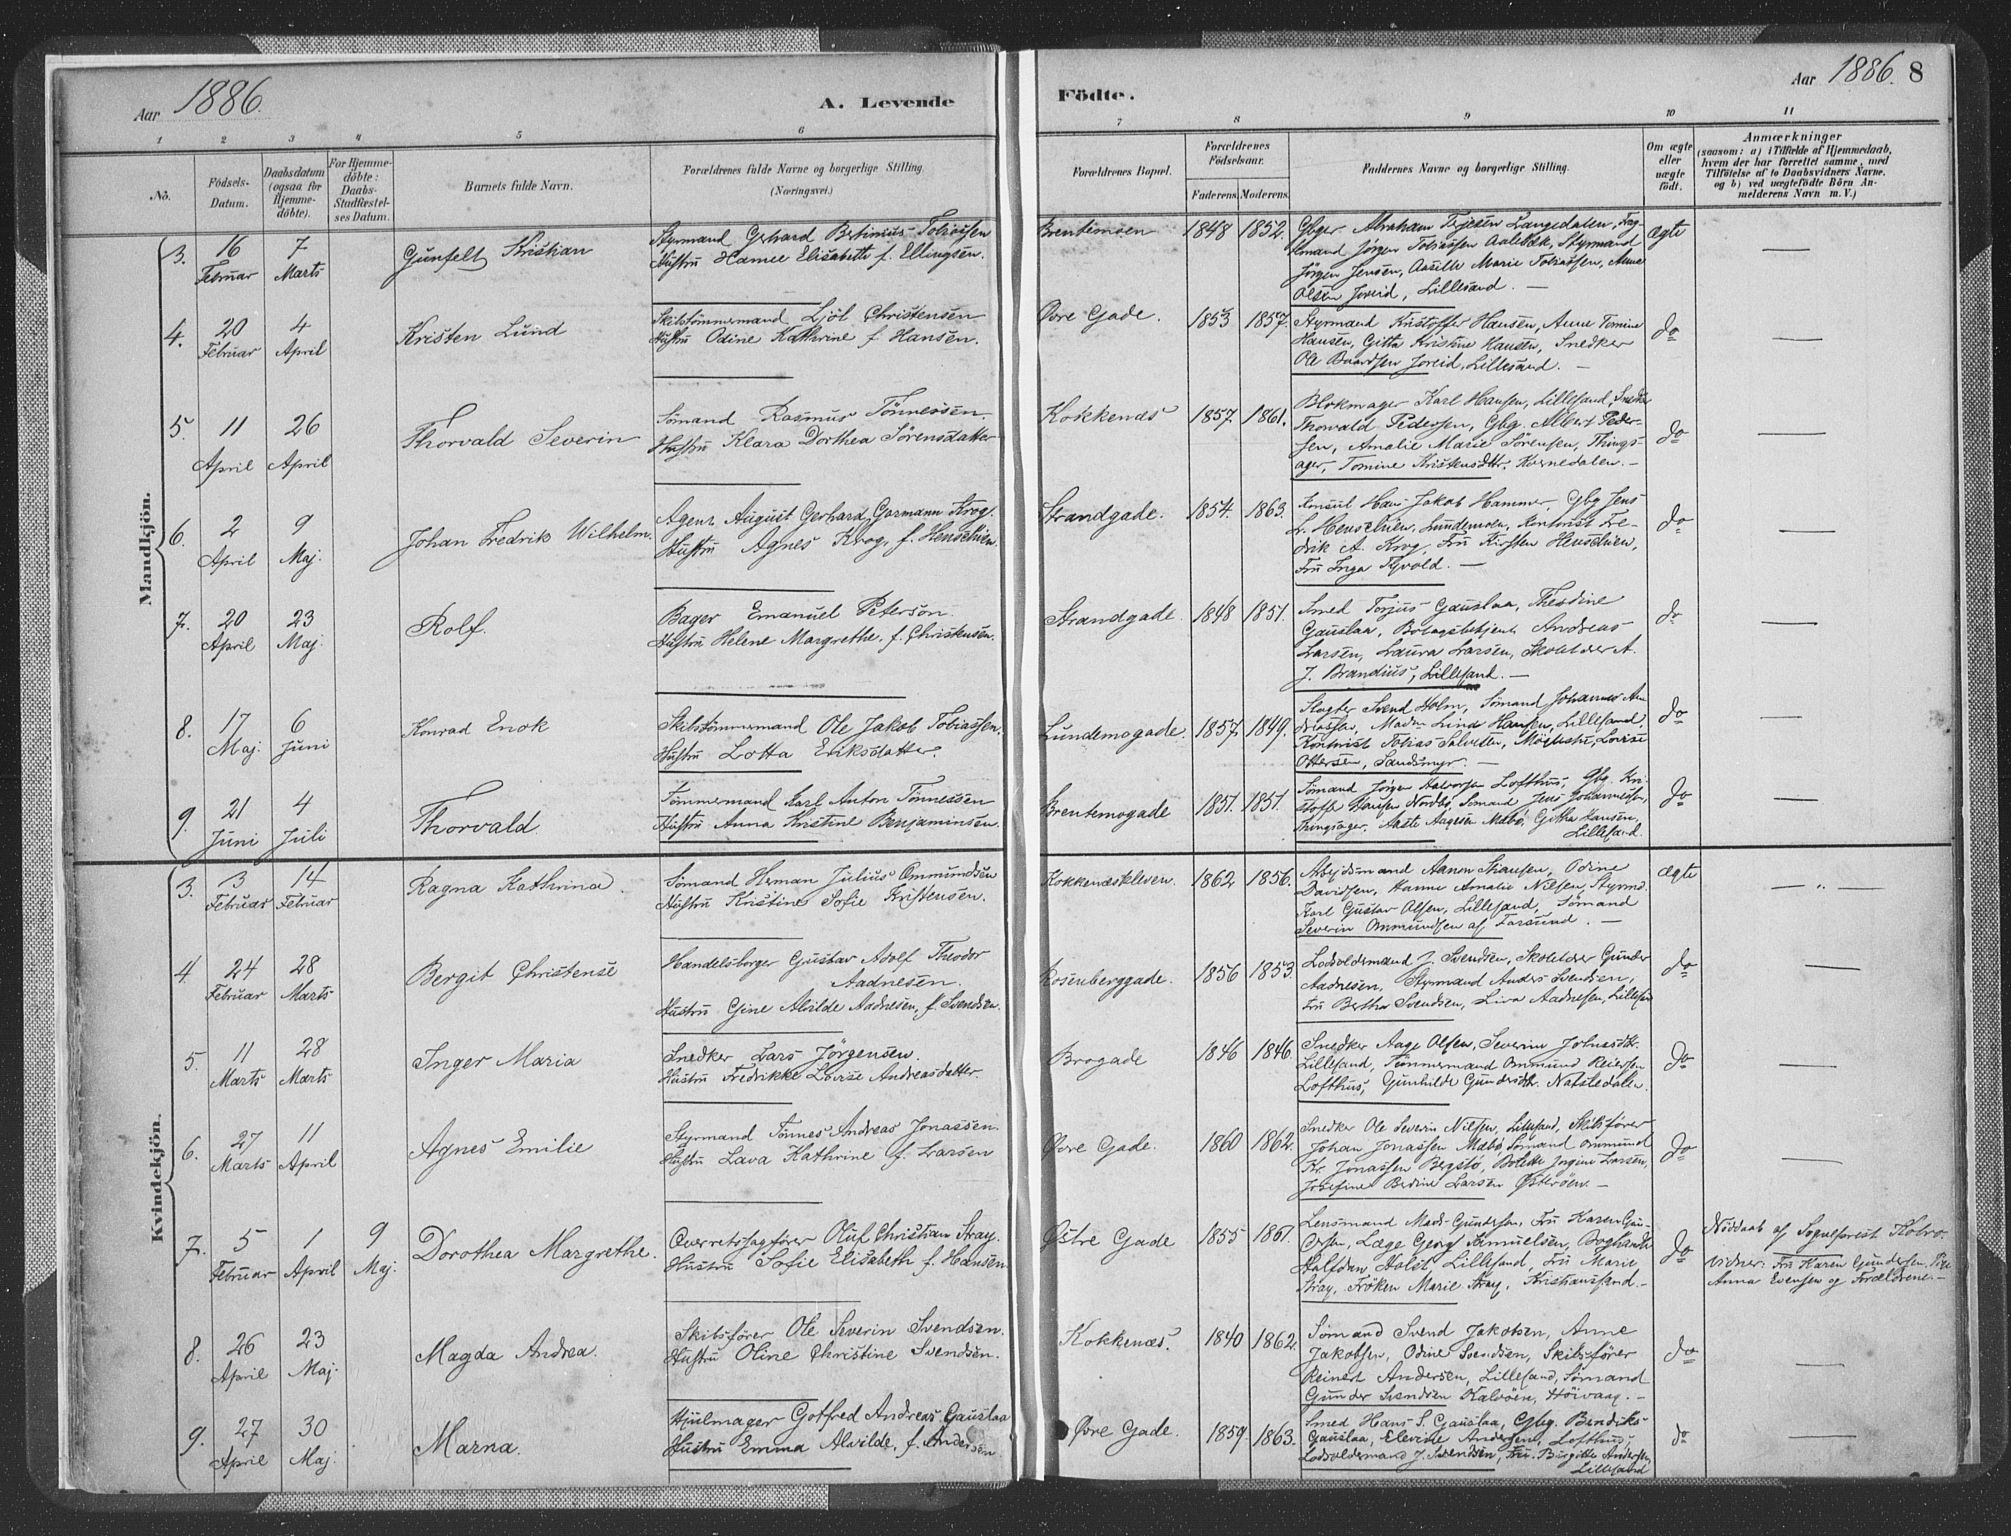 Aar 1886.
A. Levende
1 2 3 4 5 6
No.
Födsels-
Datum.
Daabsdatum
(ogsaa for
Hjemme-
döbte).
For Hjemme-
döbte:
Daabs-
Stadfæstel-
ses Datum.
Barnets fulde Navn.
Forældrenes fulde Navne og borgerlige Stilling
(Næringsvei.)
Mandkjön.
3. 16 Februar 7 Marts
Gunfelt Kristian
Styrmand Gerhard Bertinius Tobiassen
Hustru Hamee Elisabeth f. Ellingsen.
4. 20 Februar 4 April
Kristen Lund
Skibstömmermand Ljöl Christensen
Hustru Odine Kathrine f Hansen.
5. 11 April 26 April
Thorvald Severin
Sömand Rasmus Tönnessen.
Hustru Klara Dorthea Sörensdatter
6. 2 April 9 Maj.
Johan Fredrik Wilhelm.
Agent August Gerhard Garmann Krog.
Hustru Agnes Krog, f. Henschien.
7. 20 April 23 Maj.
Rolf.
Bager Emanuel Peterson.
Hustru Helene Margrethe, f. Christensen.
8. 17 Maj. 6 Juni
Konrad Enok
Skibstömmermand Ole Jakob Tobiassen.
Hustru Lotta Eriksdatter.
9. 21 Juni 4 Juli
Thorvald
Tömmermand Karl Anton Tönnessen
Hustru Anna Kristine Benjaminsen.
Kvindekjön.
3. 3 Februar 14 Februar
Ragna Kathrina.
Sömand Herman Julius Ommundsen
Hustru Kristine Sofie Kristensen.
4. 24 Februar 28 Marts
Bergit Christense
Handelsborger Gustav Adolf Theodor
Aadnesen.
Hustru Gine Alvilde Aadnesen, f. Svendsen.
5. 11 Marts 28 Marts
Inger Maria
Snedker Lars Jörgensen.
Hustru Fredrikke Lovise Andreasdatter.
6. 27 Marts 11 April
Agnes Emilie
Styrmand Tönnes Andreas Jonassen.
Hustru Lava Kathrine f. Larssen
7. 5 Februar 1 April 9 Maj.
Dorothea Margrethe.
Overretssagfører Oluf Christian Stray.
Hustru Sofie Elisabeth f. Hansen
8. 26 April 23 Maj.
Magda Andrea.
Skibsfører Ole Severin Svendsen.
Hustru Oline Christine Svendsen.
9. 27 April 30 Maj.
Marna.
Hjulmager Gotfred Andreas Gauslaa
Hustru Emma Alvilde, f. Andersen
Födte.
Aar 1886. 8
7 8 9 10 11
Forældrenes Bopæl.
Forældrenes
Födselsaar.
Faderens. Moderens.
Faddernes Navne og borgerlige Stilling.
Om ægte
eller
uægte
födt.
Anmærkninger
(saasom: a) i Tilfælde af Hjemmedaab,
hvem der har forrettet samme, med
Tilföielse af to Daabsvidners Navne,
og b) ved uægtefödte Börn An-
melderens Navn m. V.)
Brentemoen 1848 1852. ægte
Gbger Abraham Terjesen Langedalen,
Jörgen Tobiassen Aalebæk, Styrmand
Jörgen Jensen, Aasille Marie Tobiassen, Anne
Olsen Joreid, Lillesand. —
Övre Gade. 1853 1857. do
Styrmand Kristoffer Hansen, Anne Tomine
Hansen, Gitta Kristine Hansen, Snedker
Ole Baardsen Joreid, Lillesand. —
Kokkenæs 1857 1861. do
Blokmager Karl Hansen, Lillesand,
Thorvald Pedersen, Gbg. Albert Peder-
sen, Amalie Marie Sörensen, Things-
ager, Tomine Kristensdtr. Kornedalen. —
Strandgade. 1854. 1863. do
Konsul Hans Jakob Hammer, Gbg Jens
L. Henschien, Lundemoen, Kontorist Fre-
drik A. Krog, Fru Kirsten Henschien,
Fru Inga Tyvold. —
Strandgade. 1848 1851. do
Smed Torjus Gauslaa, Theodine
Gauslaa, Andreas
Larsen, Laura Larsen, A.
J. Brandius, Lillesand. —
Lundemogade. 1857. 1849. do
Slagter Svend Holm, Sömand Johannes An-
dreassen, Hansen, Lillesand,
Kontorist Tobias Salvesen, Lovise
Ottersen, Sandsmyr. —
Brentemogade 1851. 1851. do
Sömand Jörgen Halvorsen Lofthus, Gbg. Kri-
stoff Hansen Sömand Jens Johannessen,
Thingsager, Aaste Aagesen Gitta Hansen,
Lillesand.
Kokkenæskleven. 1862 1856. ægte — „ —
Arbejdsmand Aanon Odine
Davidsen, Hanne Amalie Nilsen, Styrmd.
Karl Gustav Olsen, Lillesand, Sömand
Severin Ommundsen af Farsund. —
Rosenberggade. 1856 1853. do
Lodsoldermand J. Svendsen, Gunder
Aadnesen, Styrmand Anders Svendsen,
Fru Berthe Svendsen, Aadnesen, Lillesand
Brogade 1846 1846. do
Snedker Aage Olsen, Severine Johnsdtr.
Lillesand, Tömmermand Ommund Reiersen
Lofthus, Gunhilde Gundersdtr.
Övre Gade. 1860 1862. do
Snedker Ole Severin Nilsen, Lillesand, Skibsfører
Johan Jonassen Sömand Ommund
Kr. Jonassen Bergstö, Bolette Jorgine Larssen,
Josefine Berdine Larsen Österöen. —
Östre Gade 1855 1861. do
Lensmand Mads Gundersen, Fru Karen Gun-
dersen, Læge Georg Samuelsen, Boghandle
Halfdan Holst, Lillesand, Fru Marie
Stray, Fröken Marie Stray, Kristianssand. —
Nöddaab af Sogneprest
vidner: Fru Karen Gundersen,
Anna Evensen og Forældrene. —
Kokkenæs. 1840 1862. do
Sömand Svend Jakobsen, Anne
Jakobsen, Odine Svendsen, Skibsfører
Reinert Andersen, Lillesand, Sömand
Gunder Svendsen Kalvöen, Höivaag. —
Övre Gade. 1859 1863. do
Smed Hans S. Gauslaa, Gbg. Bendiks
Gauslaa, Elevine Andersen, Lofthus,
Lodsoldermand J. Svendsen, Fru Birgitte Andersen,
Lillesand